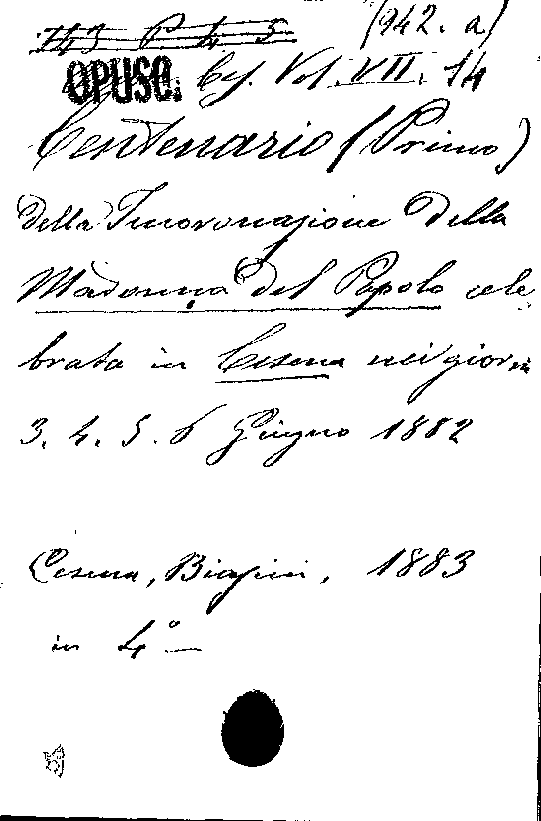 143 P. 4 5 (942. a)
OPUSC. Ces. Vol. VII. 14
Centenario (Primo)
della Incoronazione della
Madonna del Popolo cele
brata in Cesena nei giorni
3. 4. 5. 6 Giugno 1882
Cesena, Biasini, 1883
in 4°